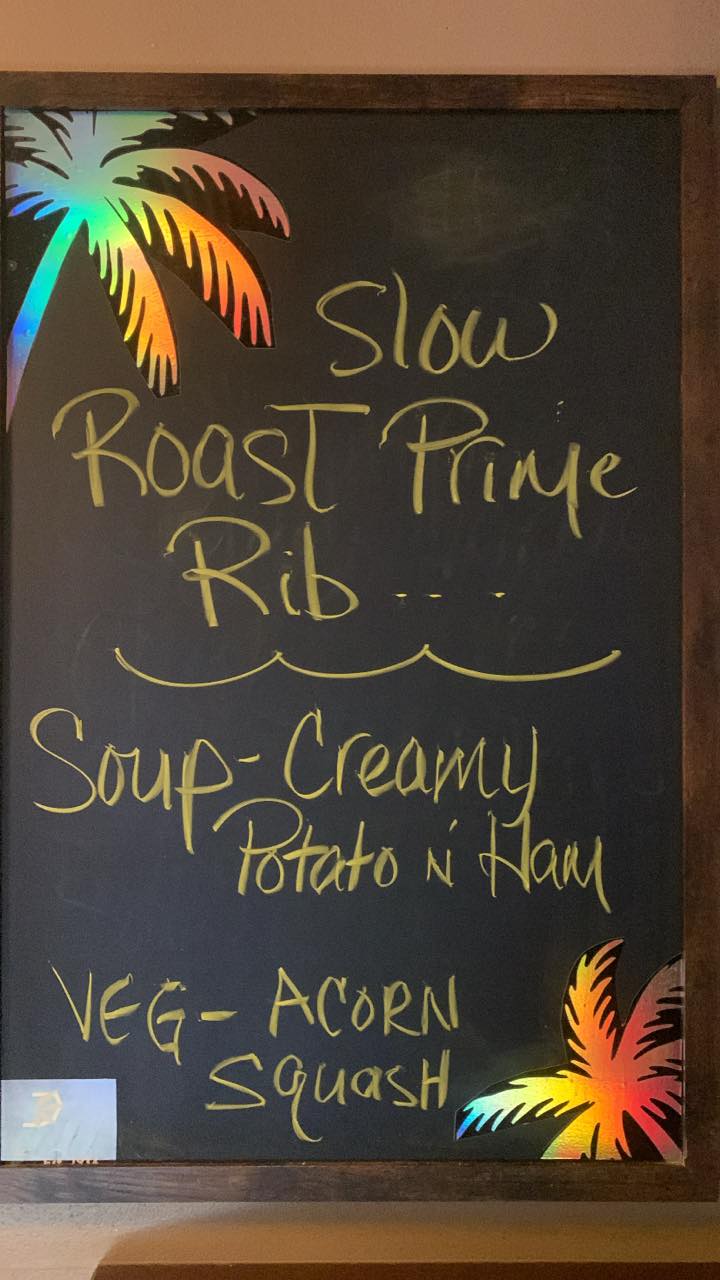 Slow
Roast Prime
Rib .. .
Soup- Creamy
Potato N' Ham
VEG- ACORN
SquasH